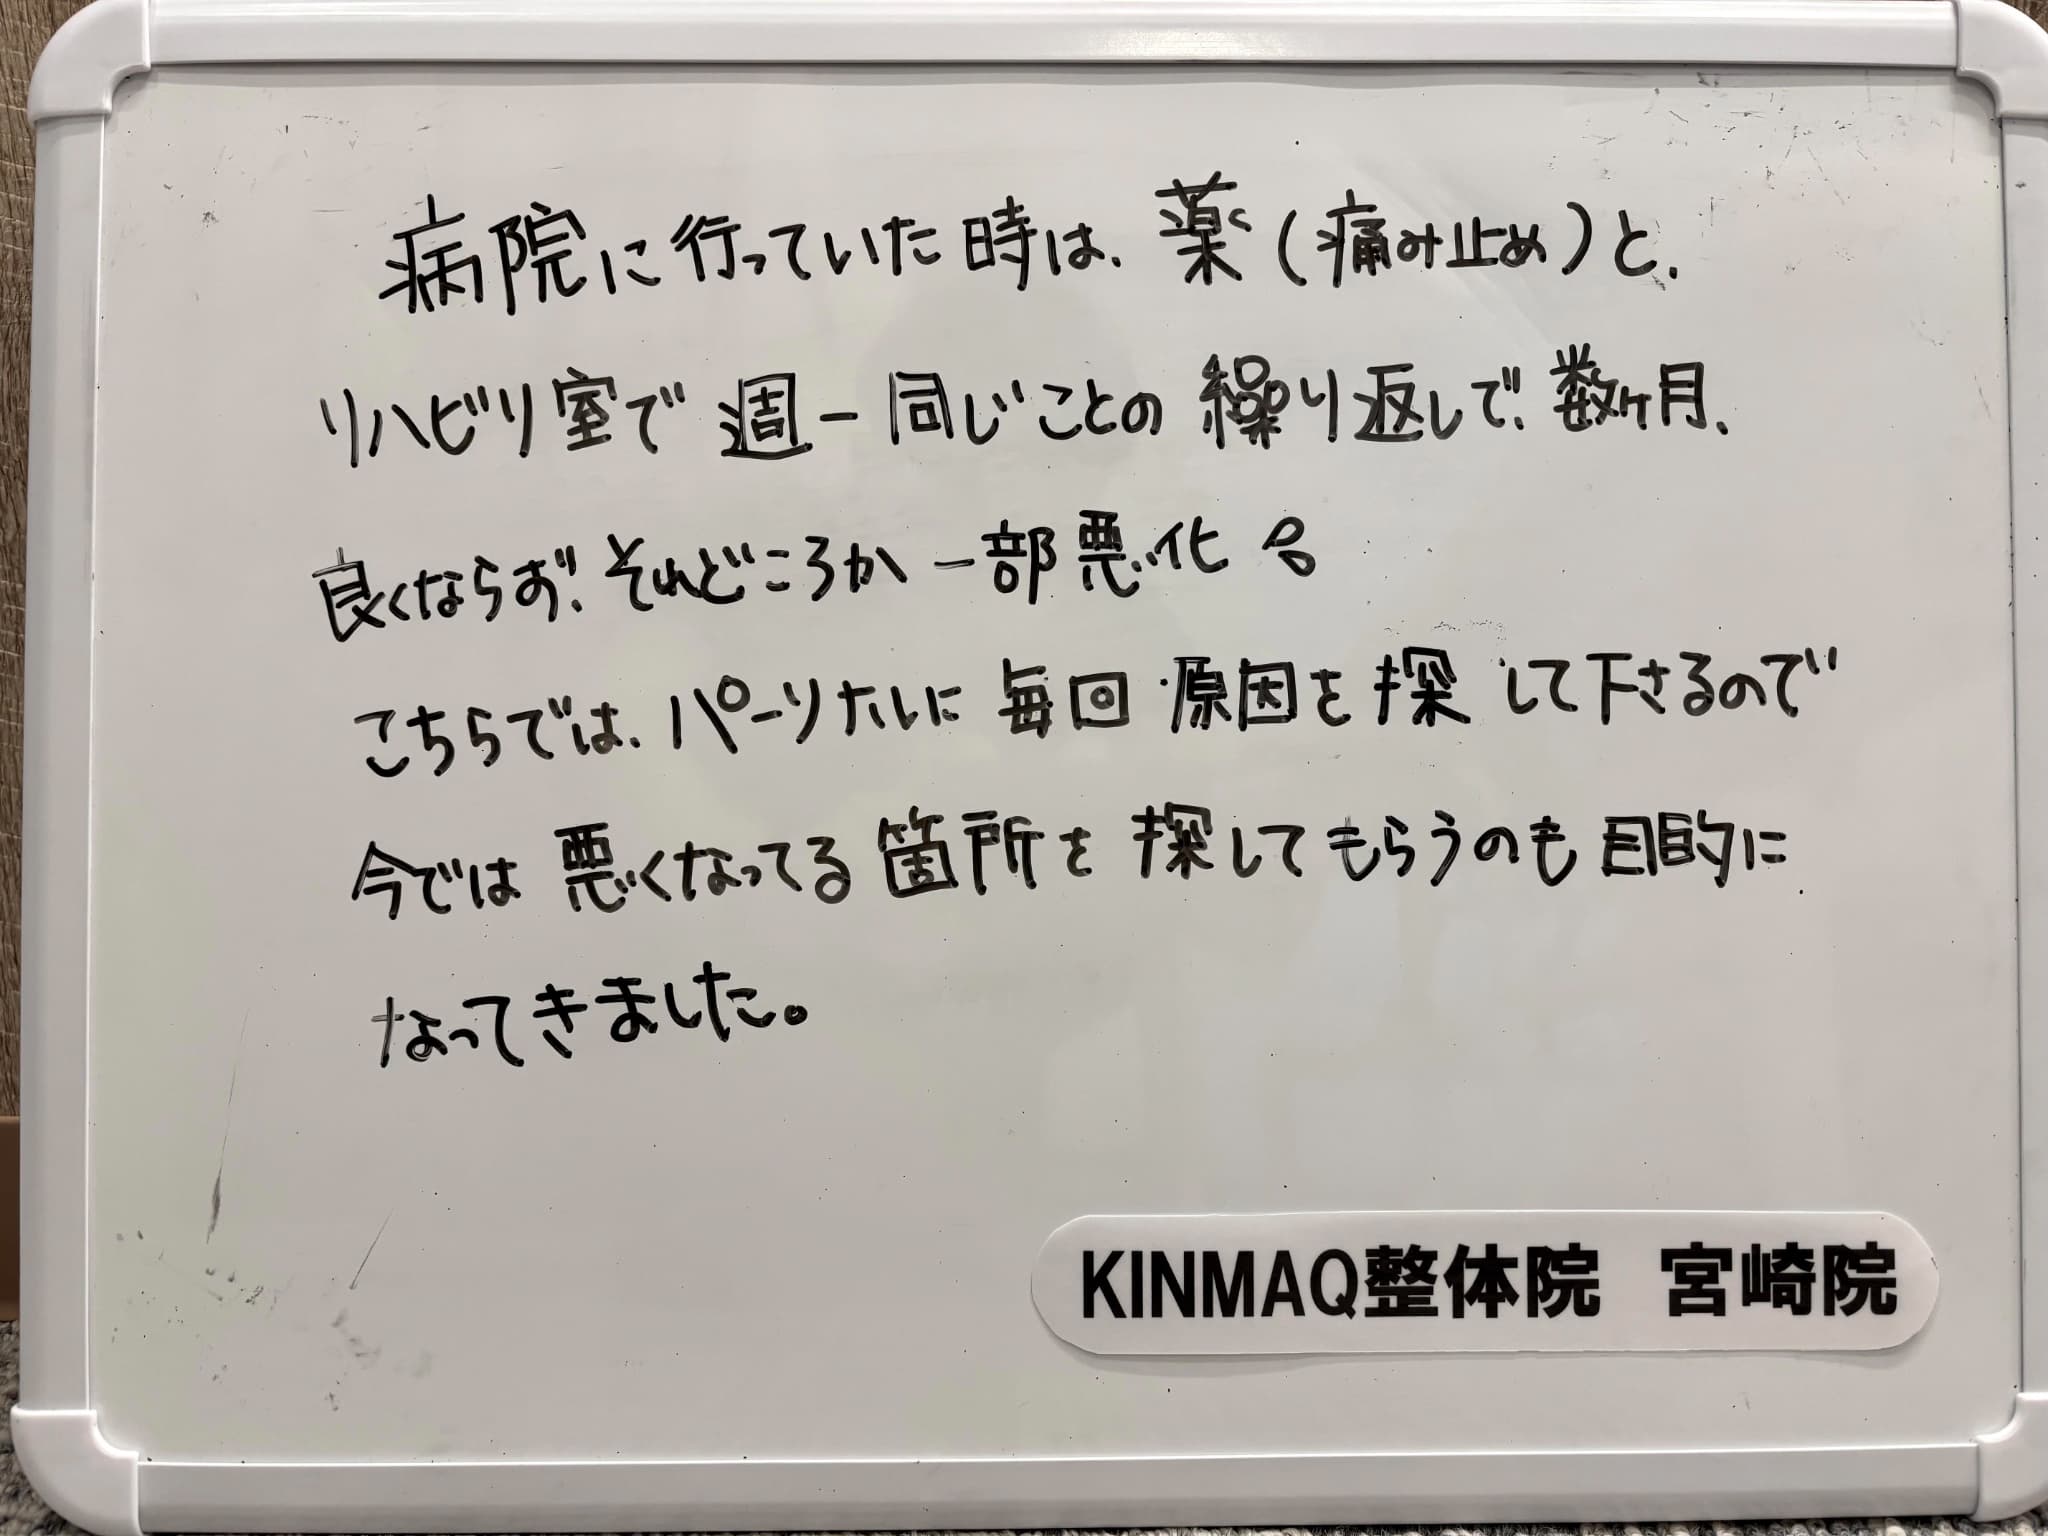 病院に行っていた時は、薬(痛み止め)と、
リハビリ室で週一同じことの繰り返しで、数ヶ月、
良くならず、それどころか一部悪化
こちらでは、パーソナルに毎回原因を探して下さるので
今では悪くなってる箇所を探してもらうのも目的に
なってきました。
KINMAQ整体院 宮崎院